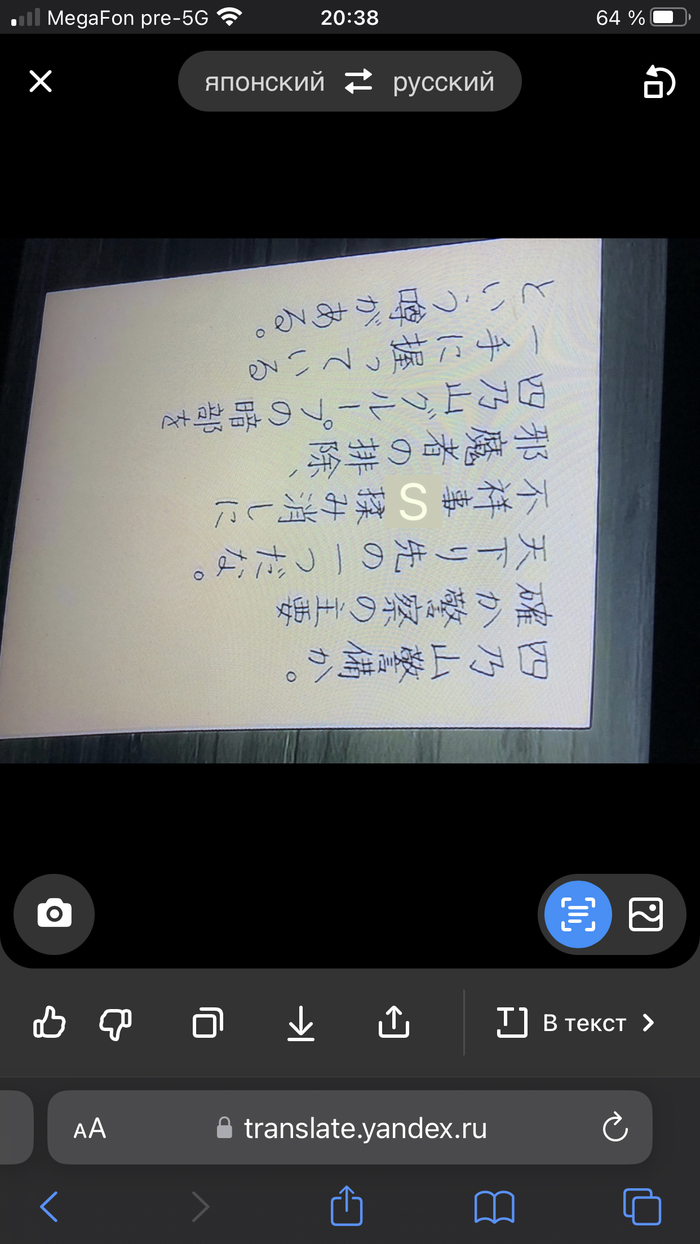 MegaFon pre-5G
20:38
64 %
японский
русский
四乃山警備か。
確か警察の主要
天下り先の一つだな。
不祥事S揉み消しに
邪魔者の排除、
四乃山グループの暗部を
一手に握っている
という噂がある。
В текст
AA
translate.yandex.ru